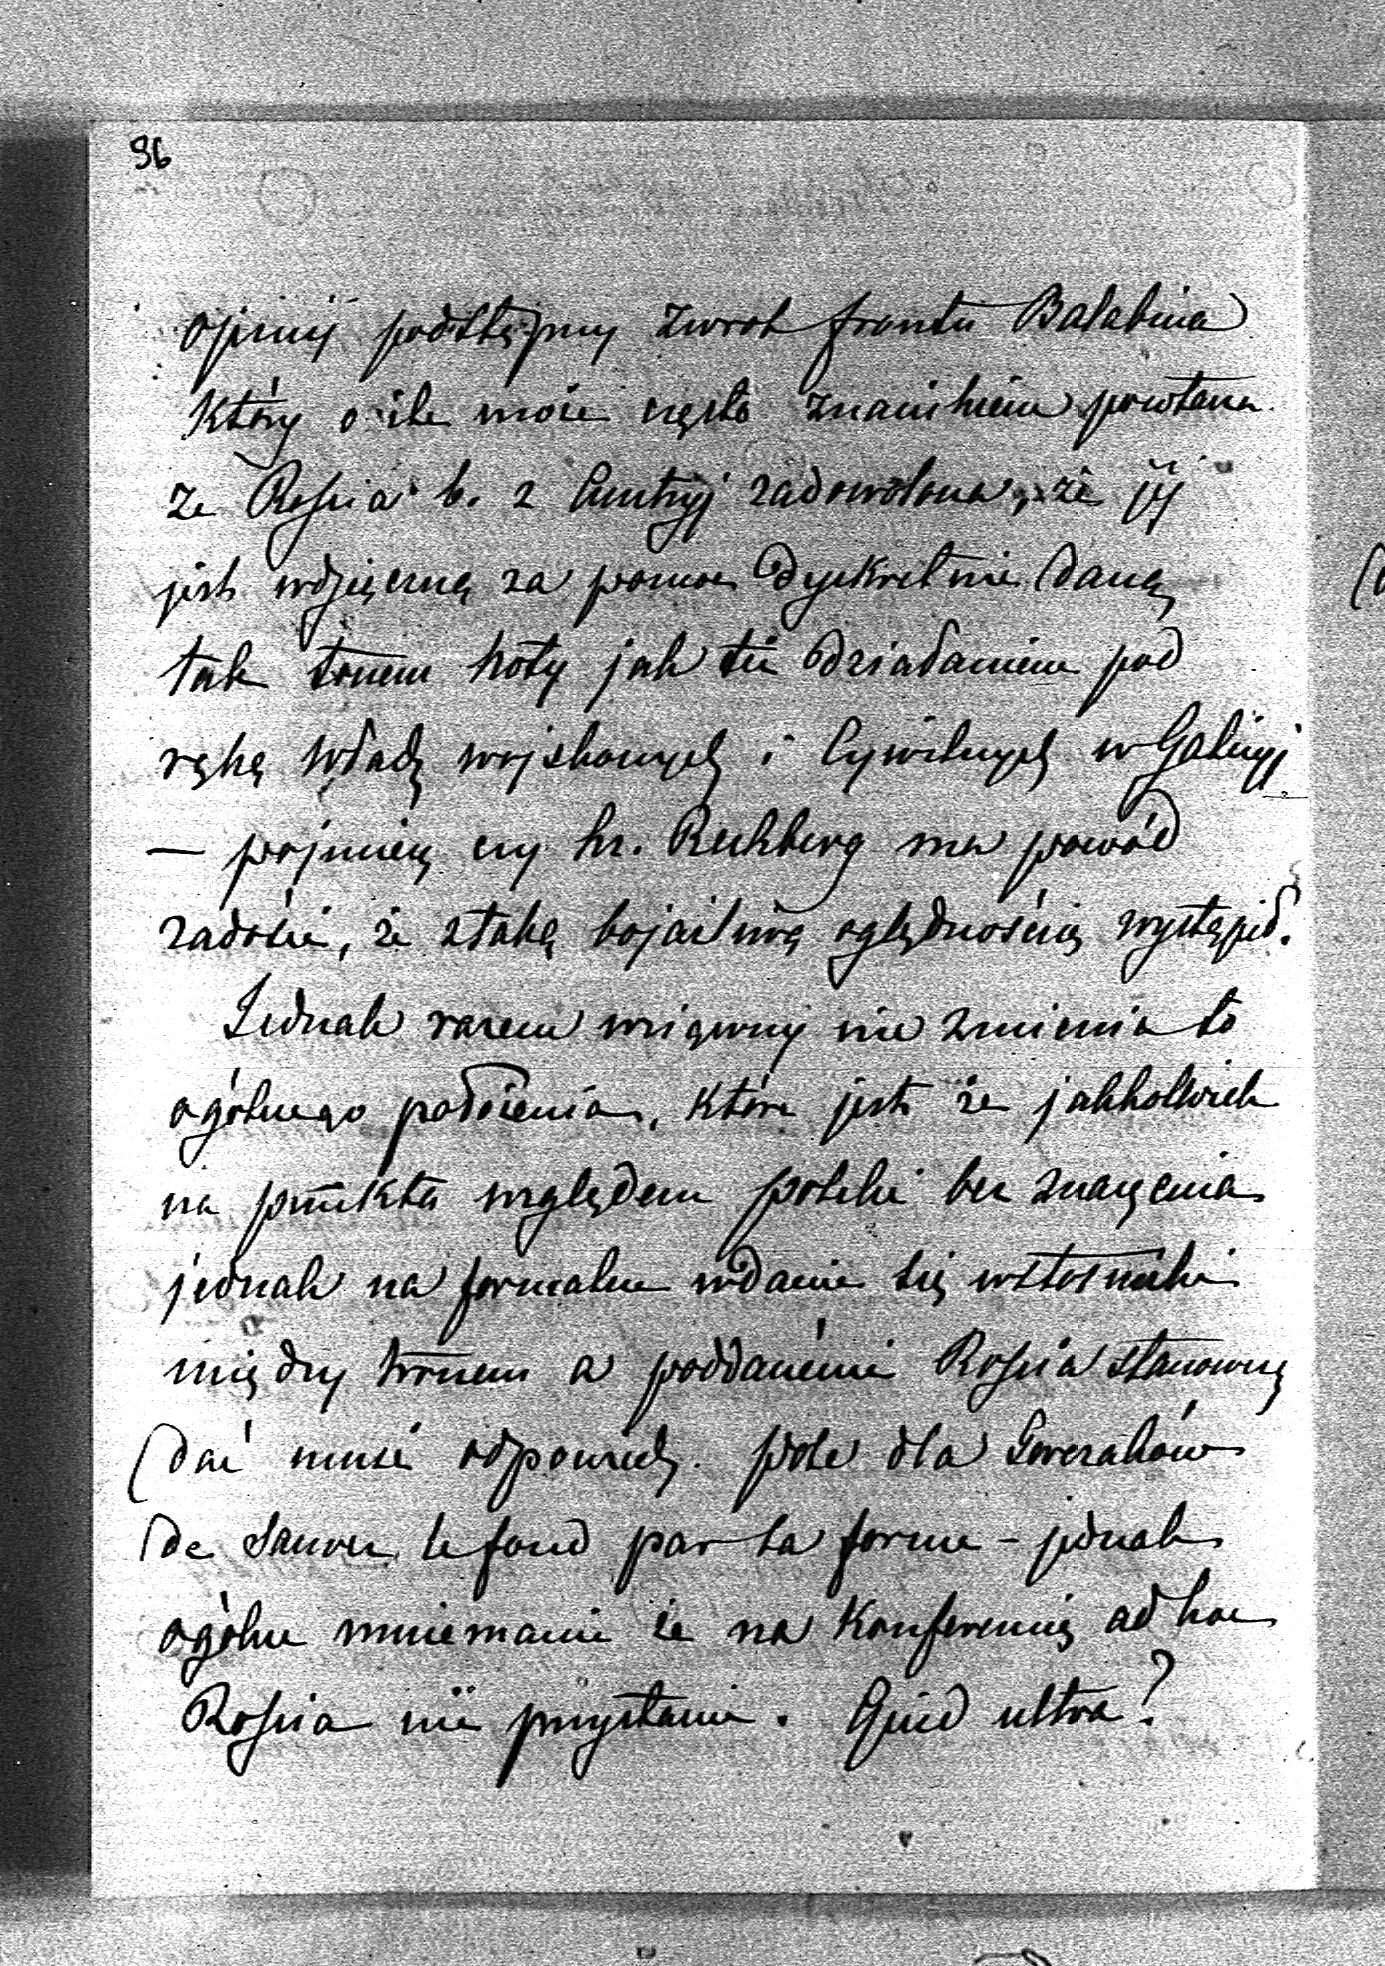 96
opinij podstępny zwrot frontu Bałabina
Który o ile może często znaczkiem powtarza
że Rossia b. z Austryj zadowolona, że jéj
jest wdzięczną za pomoc dyskretnie daną
tak tonem Noty jak też działaniem pod
ręką Władz wojskowych i Cywilnych w Galicyj
— pojmiesz czy hr. Rechberg ma powód
żadość, że z taką bojaźliwą oględnością wystąpił.
Jednak razem wziąwszy nie zmienia to
ogólnego położenia, które jest że jakkolwiek
na punkta względem polski bez znaczenia
jednak na formalne wdanie się w stosunki
między tronem a poddanémi Rossia stanowczą
dać musi odpowiedź. pole dla Gorczaków
de sauver le fond par la forme – jednak
ogólne mniemanie że na Konferencią ad hoc
Rossia nie przystanie. Quid ultra?